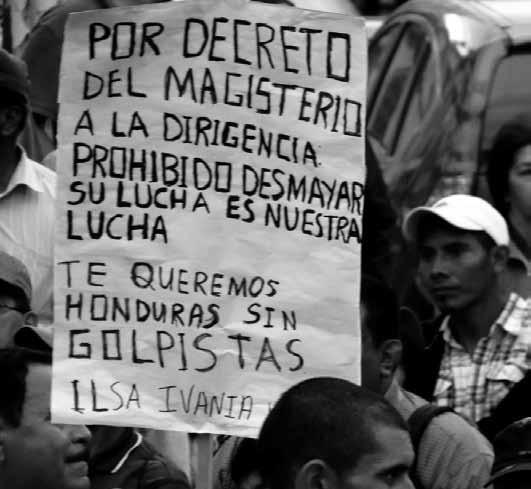 POR DECRETO
DEL MAGISTERIO
A LA DIRIGENCIA:
PROHIBIDO DESMAYAR
SU LUCHA ES NUESTRA
LUCHA
TE QUEREMOS
HONDURAS SIN
GOLPISTAS
ILSA IVANIA